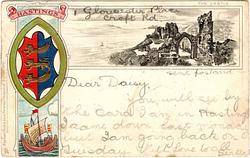 THE CASTLE
HASTINGS
1 Gloucester Place
Croft Rd
Dear Daisy,
You will see by
the Card I am in Hastings
down
I am going back on
Tuesday. With love to all